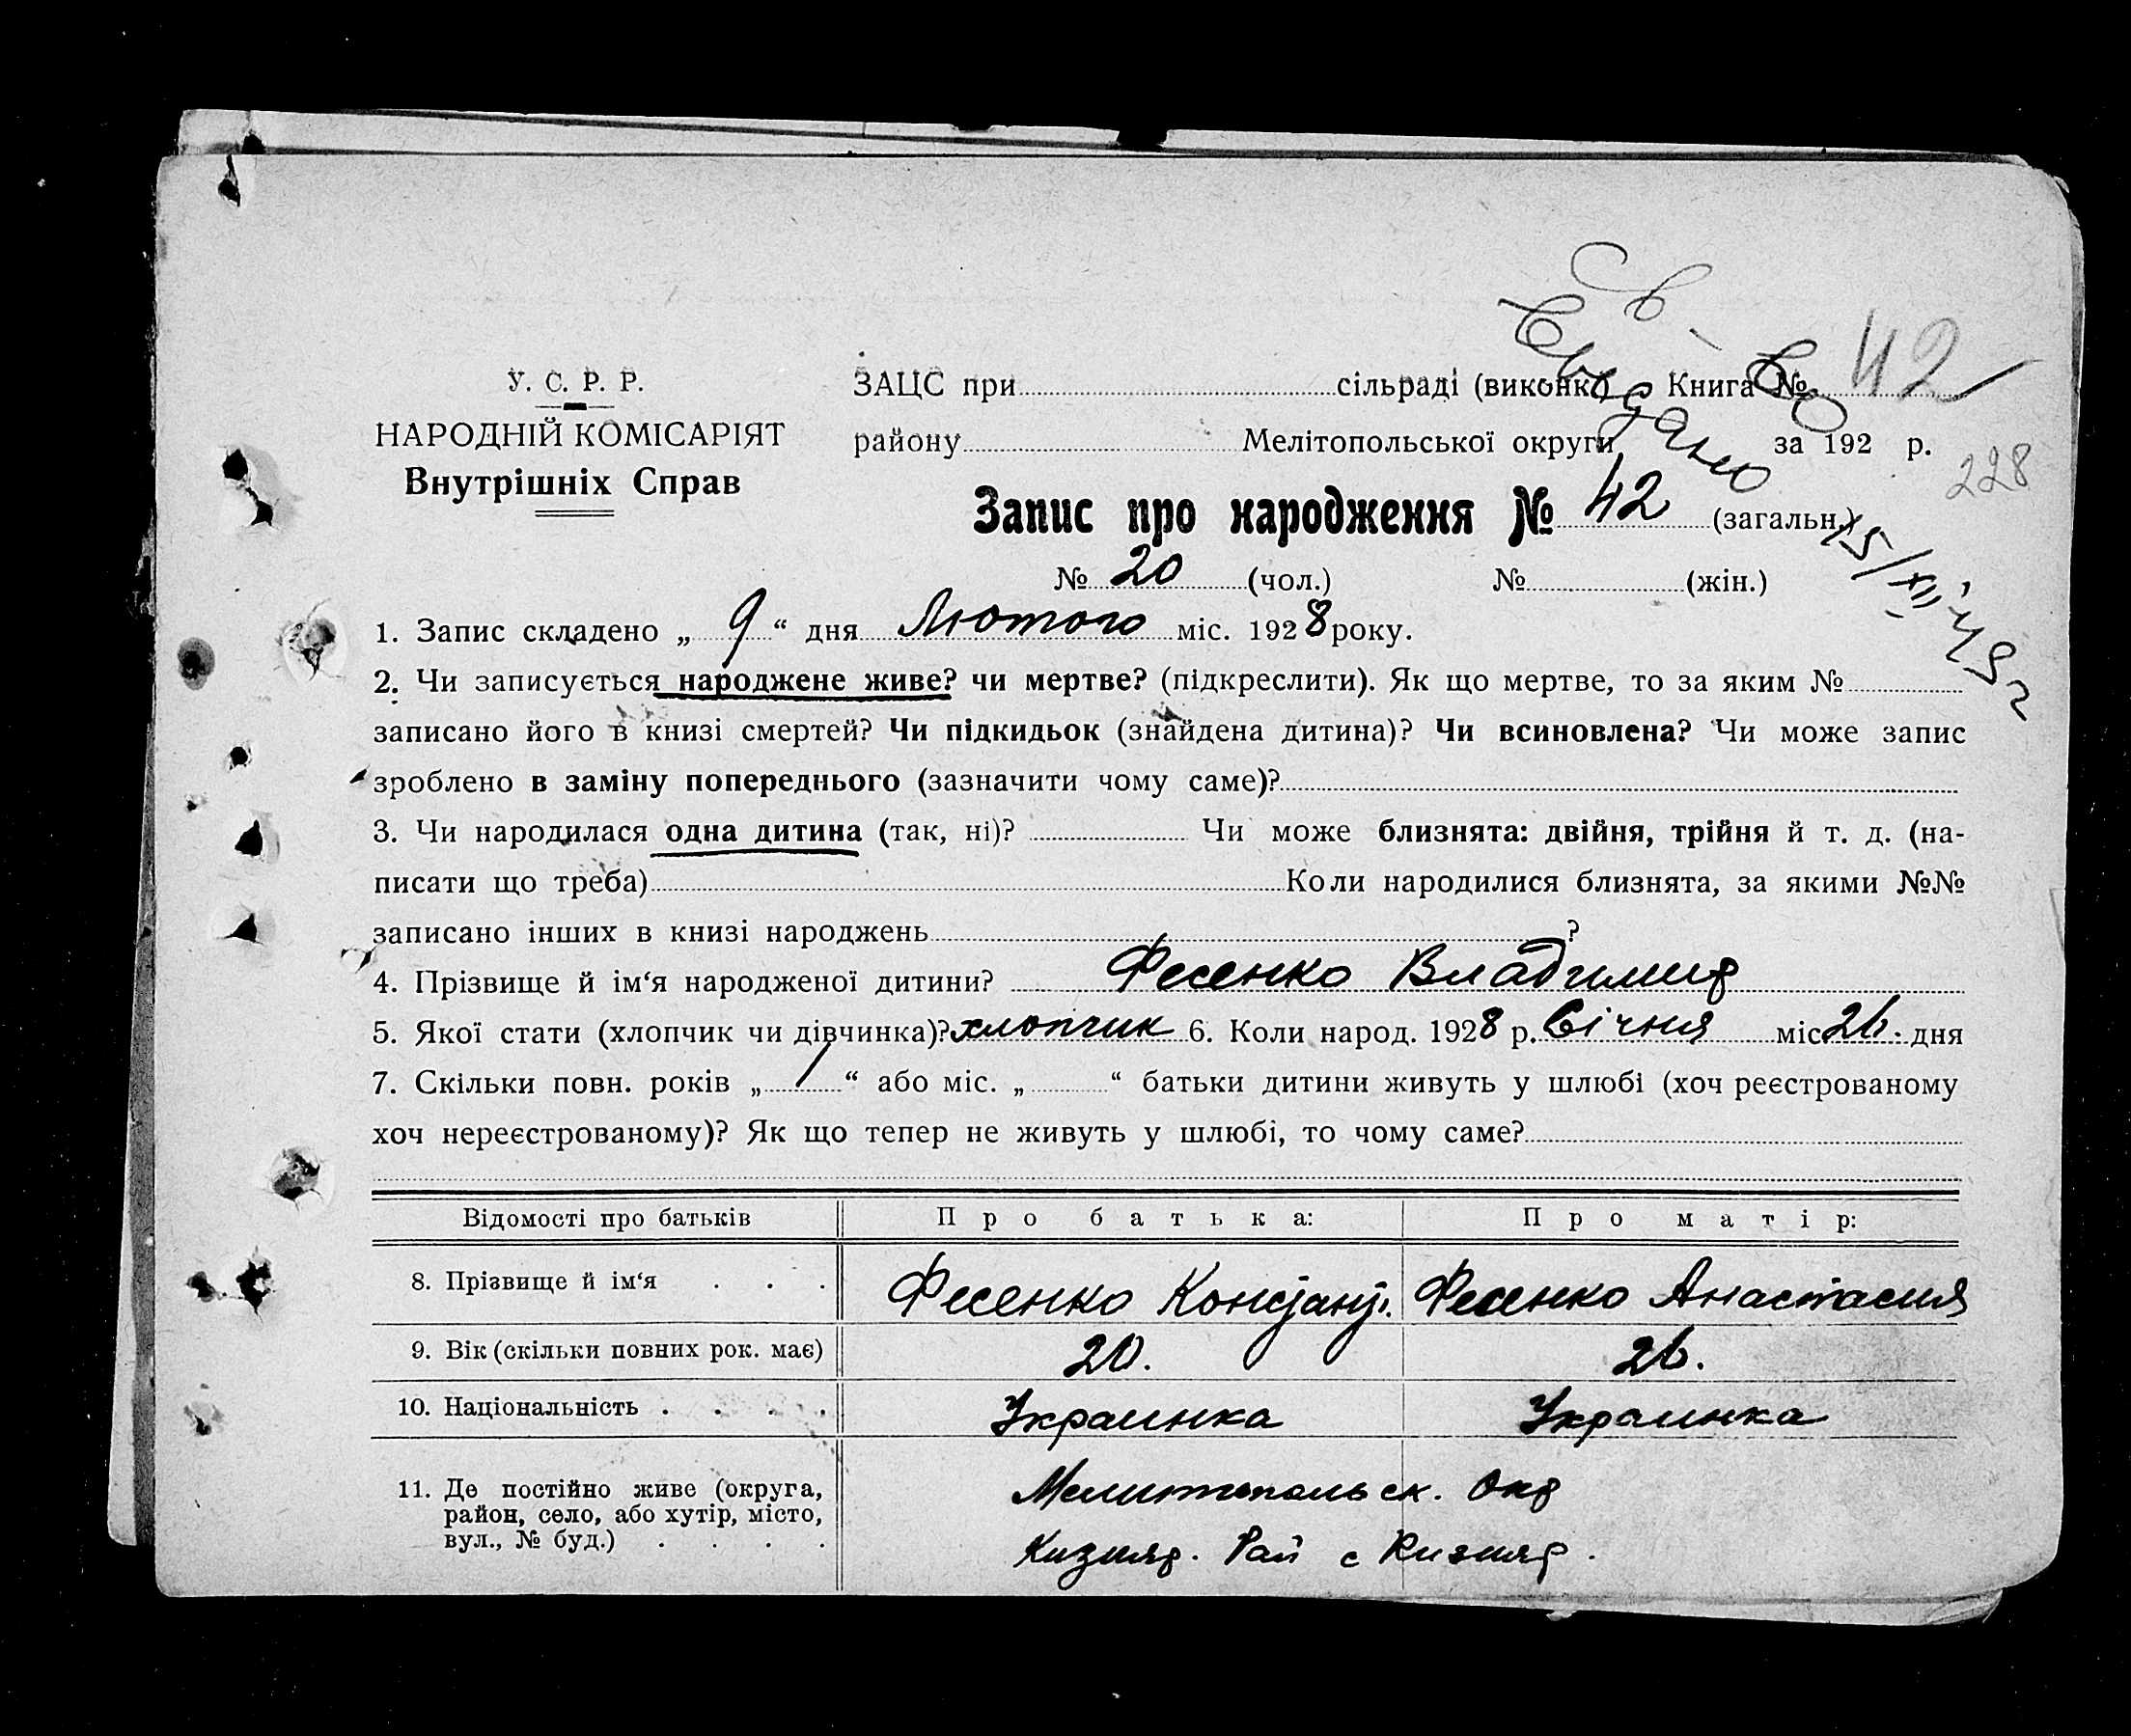 Св-во
Выдано
15/XII-49 г
42
228
У. С. Р. Р.
НАРОДНІЙ КОМІСАРІЯТ
Внутрішніх Справ
ЗАЦС при сільраді (виконк) Книга №
району Мелітопольської округи за 192 р.
Запис про народження № 42 (загальн.)
№ 20 (чол.) № (жін.)
1. Запис складено „ 9 “ дня Лютого міс. 1928 року.
2. Чи записується народжене живе? чи мертве? (підкреслити). Як що мертве, то за яким №
записано його в книзі смертей? Чи підкидьок (знайдена дитина)? Чи всиновлена? Чи може запис
зроблено в заміну попереднього (зазначити чому саме)?
3. Чи народилася одна дитина (так, ні)? Чи може близнята: двійня, трійня й т. д. (на-
писати що треба) Коли народилися близнята, за якими №№
записано інших в книзі народжень ?
4. Прізвище й ім‘я народженої дитини? Фесенко Владимир
5. Якої стати (хлопчик чи дівчинка)? хлопчик 6. Коли народ. 1928 р. Січня міс 26. дня
7. Скільки повн. років „ 1 “ або міс. „ “ батьки дитини живуть у шлюбі (хоч реєстрованому
хоч нереєстрованому)? Як що тепер не живуть у шлюбі, то чому саме?
Відомості про батьків Про батька: Про матір:
8. Прізвище й ім‘я . . . Фесенко Констант. Фесенко Анастасия
9. Вік (скільки повних рок. має) 20. 26.
10. Національність . . . . Украинка Украинка
11. Де постійно живе (округа, Мелитопольск. Окр
район, село, або хутір, місто,
вул., № буд.) . . . . Кизияр. Рай с Кизияр.